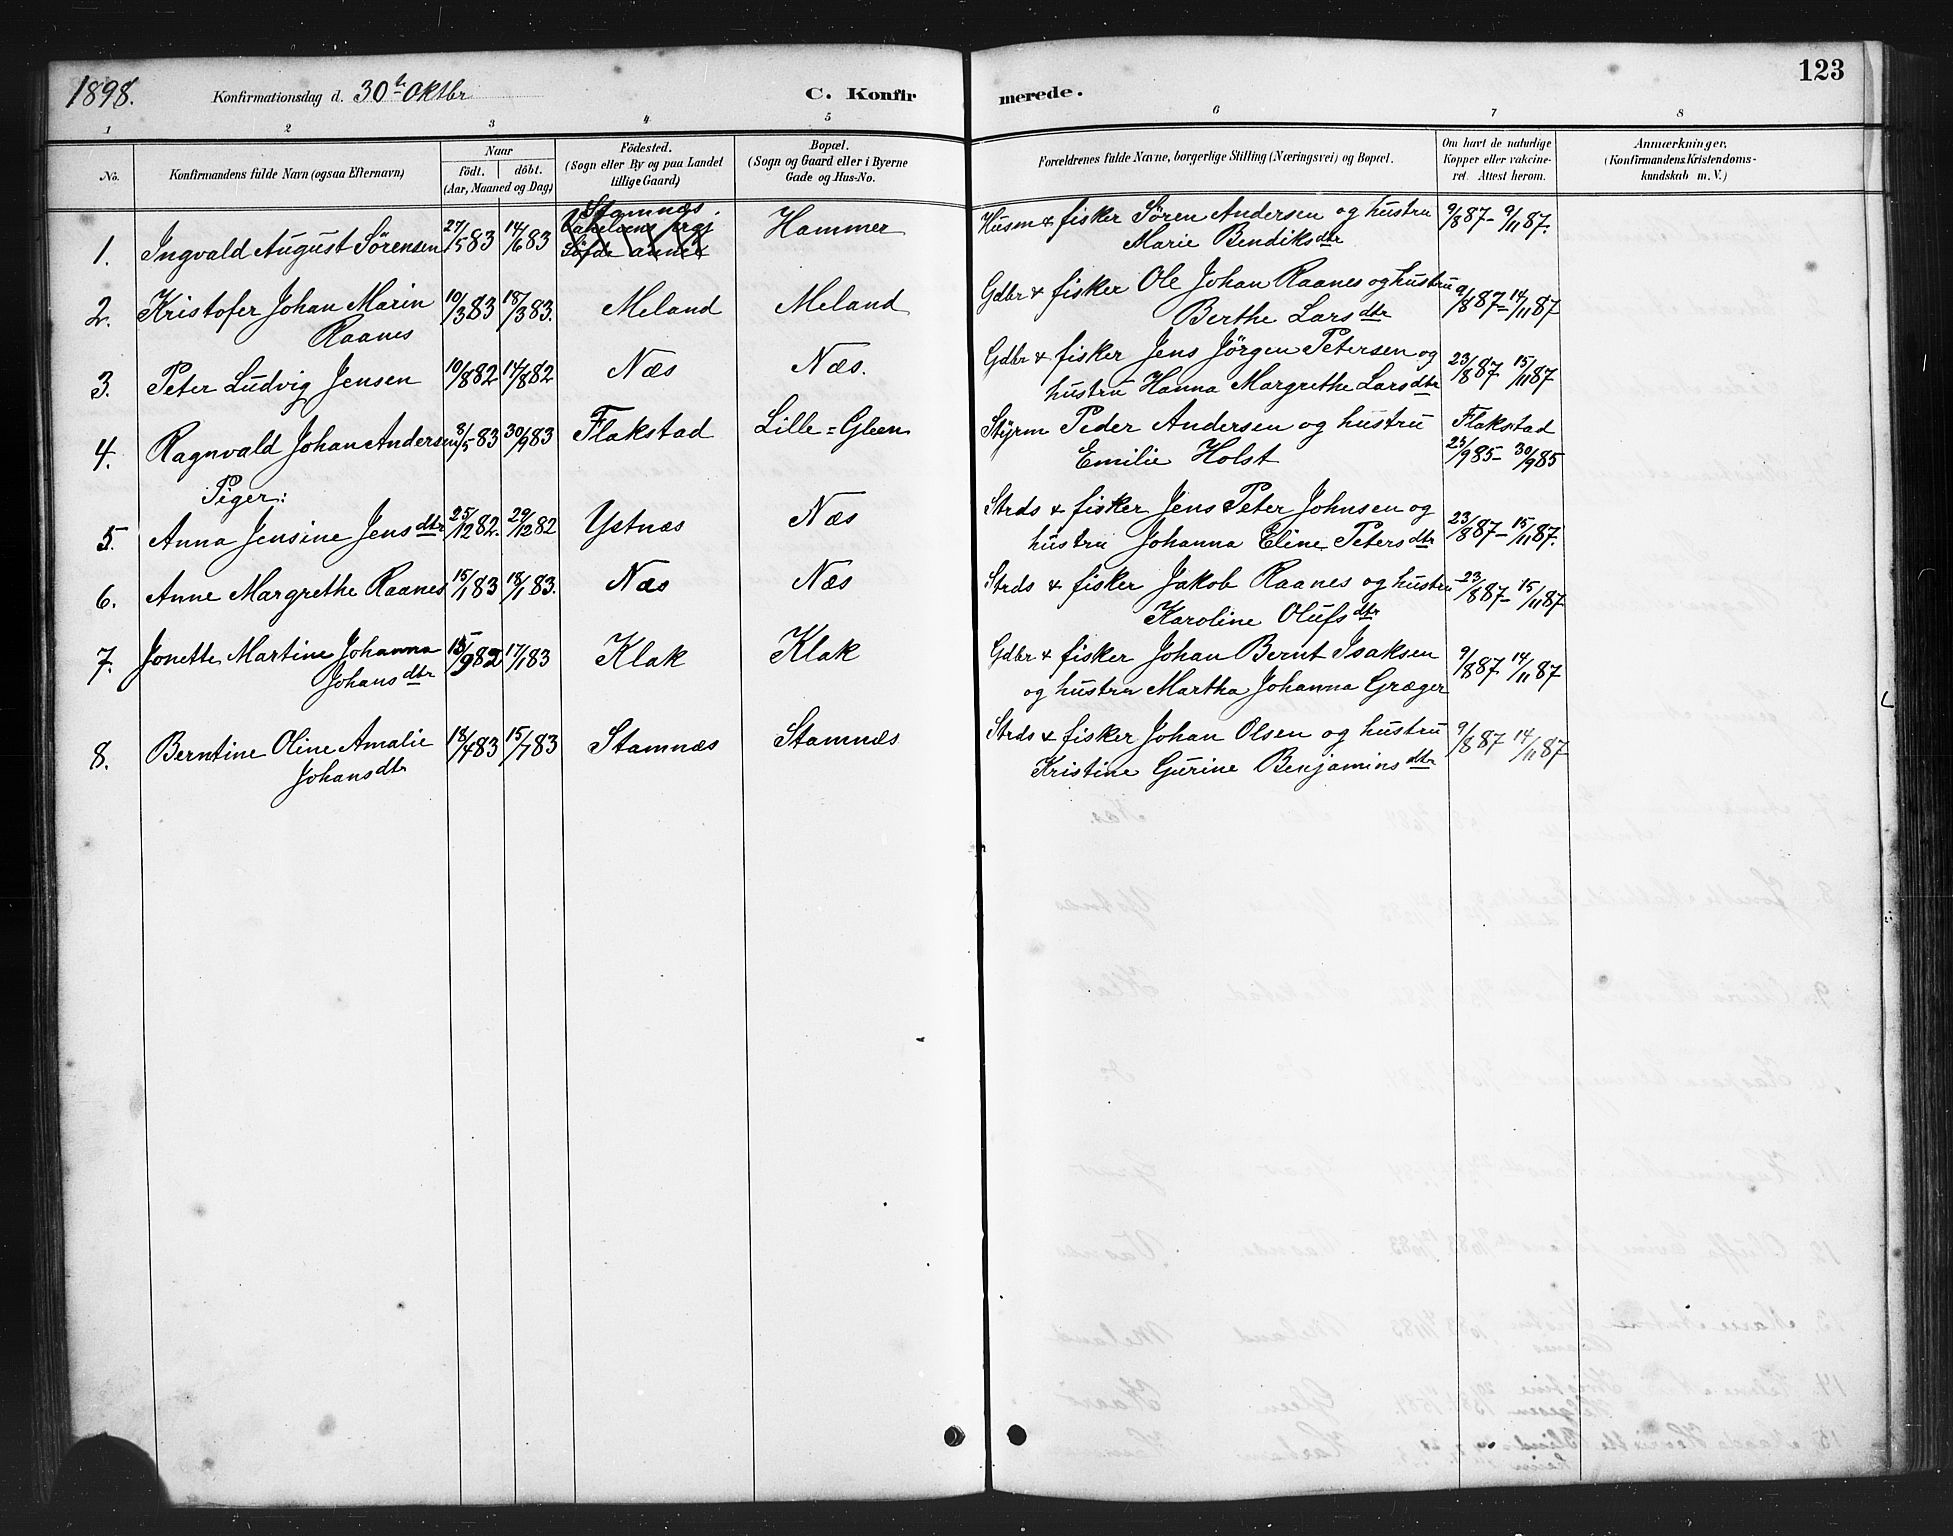 1898.
Konfirmationsdag d. 30te Oktbr
C. Konfirmerede.
123
1 2 3 4 5 6 7 8
No.
Konfirmandens fulde Navn (ogsaa Efternavn)
Naar
födt. döbt.
(Aar, Maaned og Dag)
Födested.
(Sogn eller By og paa Landet
tillige Gaard)
Bopæl.
(Sogn og Gaard eller i Byerne
Gade og Hus-No.
Forældrenes fulde Navne, borgerlige Stilling (Næringsvei) og Bopæl.
Om havt de naturlige
Kopper eller vakcine-
ret. Attest herom.
Anmærkninger.
(Konfirmandens Kristendoms-
kundskab m. V.)
1. Ingvald August Sörensen 27/5 83 14/6 83 Stamnæs Hammer Husm & fisker Sören Andersen og hustru 9/8 87 - 9/11 87.
Marie Bendiksdtr
2. Kristofer Johan Marin 10/3 83 18/3 83. Meland Meland Gdbr & fisker Ole Johan Raanes og hustru 9/8 87 - 14/11 87
Raanes Berthe Larsdtr
3. Peter Ludvig Jensen 10/8 82 14/8 82 Næs Næs. Gdbr & fisker Jens Jörgen Petersen og 23/8 87 15/11 87
hustru Hanna Margrethe Larsdtr
4. Ragnvald Johan Andersen 3/5 83 30/9 83 Flakstad Lille=Gleen Styrm Peder Andersen og hustru Flakstad
Emilie Holst 23/9 85 - 30/9 85
Piger:
5. Anna Jensine Jensdtr 25/12 82. 29/12 82 Ystnæs Næs Strds & fisker Jens Peter Johnsen og 23/8 87 - 15/11 87.
hustru Johanna Eline Petersdtr
6. Anne Margrethe Raanes 15/1 83 18/1 83. Næs Næs Strds & fisker Jakob Raanes og hustru 23/8 87 - 15/11 87
Karoline Olufsdtr
7. Jonette Martine Johanna 15/9 82 17/1 83 Klak Klak Gdbr & fisker Johan Bernt Isaksen 9/8 87 14/11 87
Johansdtr og hustru Martha Johanna Græger
8. Berntine Oline Amalie 18/4 83 15/7 83 Stamnæs Stamnæs Strds & fisker Johan Olsen og hustru 9/8 87 14/11 87
Johansdtr Kristine Gurine Benjaminsdtr